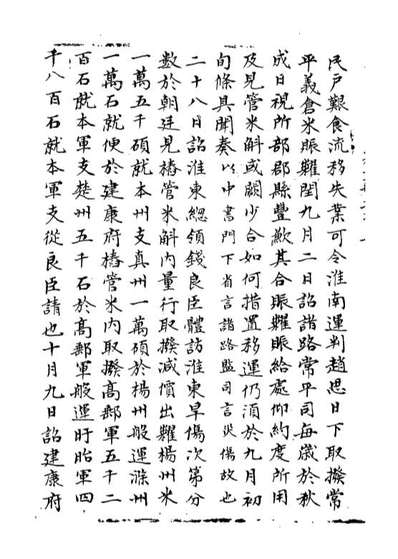 民戶艱食流移失業可令淮南運判趙思日下取撥常
平義倉米賑糶閏九月二日詔諸路常平司每歲於秋
成日視所部郡縣豐歉其合賑糶賑給處仰約度所用
及見管米斛或闕少合如何措置移運仍須於九月初
旬條具聞奏以中書門下省言諸路監司言災傷故也
二十八日詔淮東總領錢良臣體訪淮東旱傷次第分
數於朝廷見樁管米斛內量行取撥減價出糶揚州米
一萬五千碩就本州支真州一萬碩於揚州般運滁州
一萬石就便於建康府樁管米內取撥高郵軍五千二
百石就本軍支楚州五千石於高郵軍般運盱眙軍四
千八百石就本軍支從良臣請也十月九日詔建康府